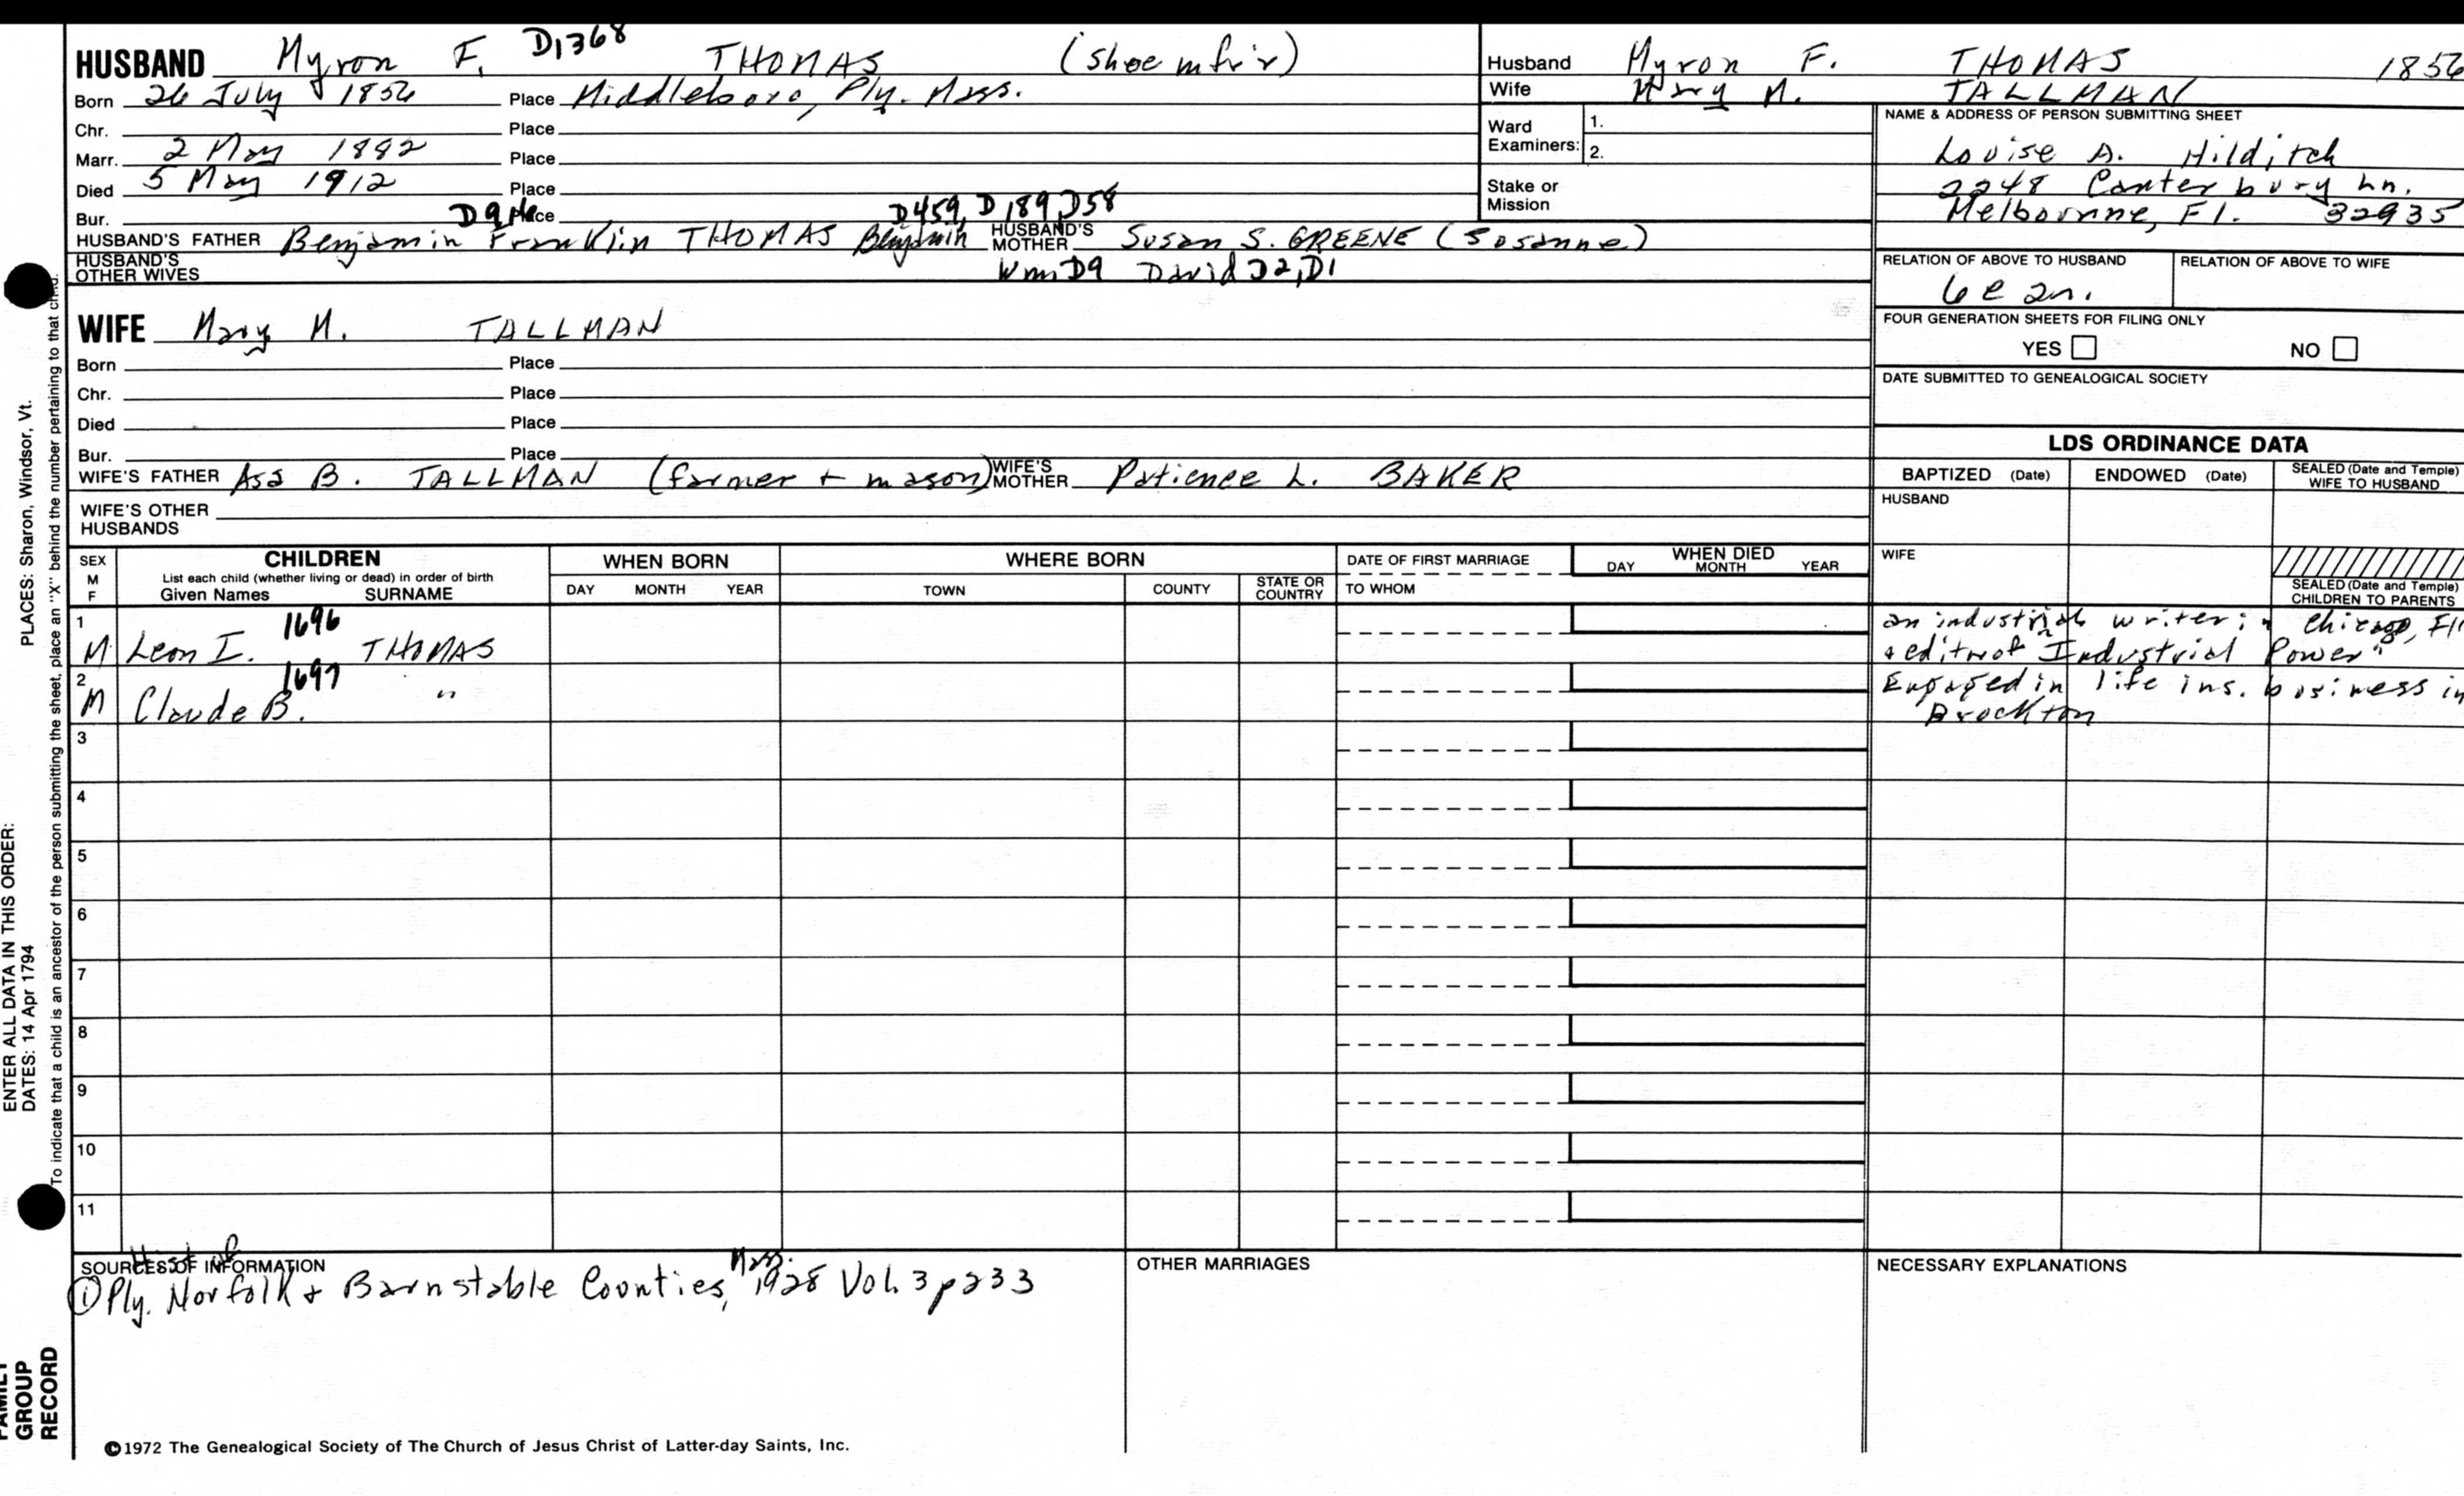 HUSBAND Myron F. D1368 THOMAS (shoe mfr'r)
Born 26 July 1856 Place Middleboro, Ply. Mass.
Chr. Place
Marr. 2 May 1882 Place
Died 5 May 1912 Place
Bur. Place D459, D189, D58
HUSBAND'S FATHER Benjamin Franklin THOMAS Benjamin HUSBAND'S MOTHER Susan S. GREENE (Susanne)
HUSBAND'S OTHER WIVES Wm D9 David D2, D1
WIFE Mary M. TALLMAN
Born Place
Chr. Place
Died Place
Bur. Place
WIFE'S FATHER Asa B. TALLMAN (farmer + mason) WIFE'S MOTHER Patience L. BAKER
WIFE'S OTHER HUSBANDS
Husband Myron F. THOMAS 1856
Wife Mary M. TALLMAN
Ward Examiners: 1.
2.
Stake or Mission
NAME & ADDRESS OF PERSON SUBMITTING SHEET
Louise A. Hilditch
2248 Canterbury Ln.
Melbourne, Fl. 32935
RELATION OF ABOVE TO HUSBAND RELATION OF ABOVE TO WIFE
FOUR GENERATION SHEETS FOR FILING ONLY
YES NO
DATE SUBMITTED TO GENEALOGICAL SOCIETY
LDS ORDINANCE DATA
BAPTIZED (Date) ENDOWED (Date) SEALED (Date and Temple) WIFE TO HUSBAND
HUSBAND
WIFE
SEALED (Date and Temple) CHILDREN TO PARENTS
SEX M F CHILDREN WHEN BORN WHERE BORN DATE OF FIRST MARRIAGE WHEN DIED
List each child (whether living or dead) in order of birth
Given Names SURNAME DAY MONTH YEAR TOWN COUNTY STATE OR COUNTRY TO WHOM DAY MONTH YEAR
1 M Leon I. 1696 THOMAS
an industrial writer in Chicago, Ill
+ editor of "Industrial Power"
2 M Claude B. 1697 "
Engaged in life ins. business in
Brockton
3
4
5
6
7
8
9
10
11
SOURCES OF INFORMATION
Hist of
① Ply. Norfolk + Barnstable Counties, Mass. 1928 Vol. 3 p233
OTHER MARRIAGES
NECESSARY EXPLANATIONS
©1972 The Genealogical Society of The Church of Jesus Christ of Latter-day Saints, Inc.
PLACES: Sharon, Windsor, Vt.
To indicate that a child is an ancestor of the person submitting the sheet, place an "X" behind the number pertaining to that child.
ENTER ALL DATA IN THIS ORDER:
DATES: 14 Apr 1794
FAMILY GROUP RECORD